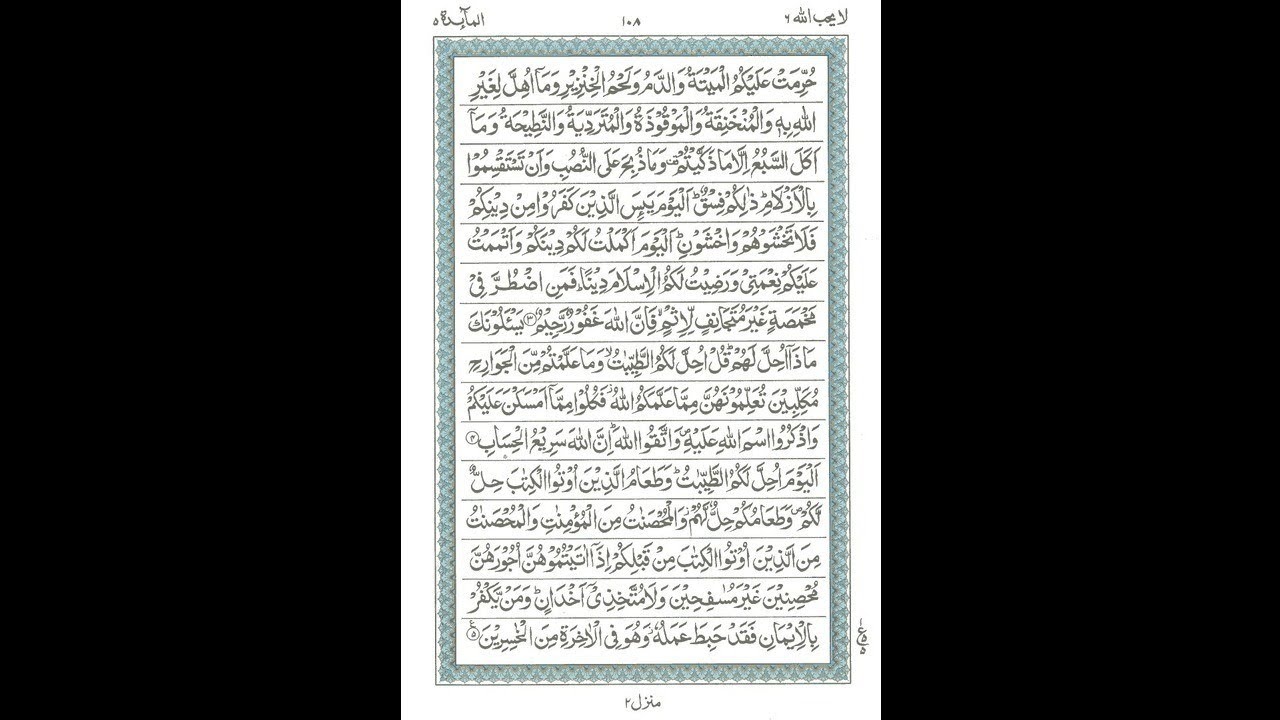 لا یحب الله ۶ ۱۰۸ المآئدة ۵
حُرِّمَتْ عَلَیْكُمُ الْمَیْتَةُ وَالدَّمُ وَلَحْمُ الْخِنْزِیْرِ وَمَاۤ اُهِلَّ لِغَیْرِ
اللّٰهِ بِهٖ وَالْمُنْخَنِقَةُ وَالْمَوْقُوْذَةُ وَالْمُتَرَدِّیَةُ وَالنَّطِیْحَةُ وَمَاۤ
اَكَلَ السَّبُعُ اِلَّا مَا ذَكَّیْتُمْ ۫ وَمَا ذُبِحَ عَلَی النُّصُبِ وَاَنْ تَسْتَقْسِمُوْا
بِالْاَزْلَامِ ؕ ذٰلِكُمْ فِسْقٌ ؕ اَلْیَوْمَ یَىِٕسَ الَّذِیْنَ كَفَرُوْا مِنْ دِیْنِكُمْ
فَلَا تَخْشَوْهُمْ وَاخْشَوْنِ ؕ اَلْیَوْمَ اَكْمَلْتُ لَكُمْ دِیْنَكُمْ وَاَتْمَمْتُ
عَلَیْكُمْ نِعْمَتِیْ وَرَضِیْتُ لَكُمُ الْاِسْلَامَ دِیْنًا ؕ فَمَنِ اضْطُرَّ فِیْ
مَخْمَصَةٍ غَیْرَ مُتَجَانِفٍ لِّاِثْمٍ ۙ فَاِنَّ اللّٰهَ غَفُوْرٌ رَّحِیْمٌ ۳ یَسْـَٔلُوْنَكَ
مَاذَاۤ اُحِلَّ لَهُمْ ؕ قُلْ اُحِلَّ لَكُمُ الطَّیِّبٰتُ ۙ وَمَا عَلَّمْتُمْ مِّنَ الْجَوَارِحِ
مُكَلِّبِیْنَ تُعَلِّمُوْنَهُنَّ مِمَّا عَلَّمَكُمُ اللّٰهُ ؗ فَكُلُوْا مِمَّاۤ اَمْسَكْنَ عَلَیْكُمْ
وَاذْكُرُوا اسْمَ اللّٰهِ عَلَیْهِ ۪ وَاتَّقُوا اللّٰهَ ؕ اِنَّ اللّٰهَ سَرِیْعُ الْحِسَابِ ۴
اَلْیَوْمَ اُحِلَّ لَكُمُ الطَّیِّبٰتُ ؕ وَطَعَامُ الَّذِیْنَ اُوْتُوا الْكِتٰبَ حِلٌّ
لَّكُمْ ۪ وَطَعَامُكُمْ حِلٌّ لَّهُمْ ؗ وَالْمُحْصَنٰتُ مِنَ الْمُؤْمِنٰتِ وَالْمُحْصَنٰتُ
مِنَ الَّذِیْنَ اُوْتُوا الْكِتٰبَ مِنْ قَبْلِكُمْ اِذَاۤ اٰتَیْتُمُوْهُنَّ اُجُوْرَهُنَّ
مُحْصِنِیْنَ غَیْرَ مُسٰفِحِیْنَ وَلَا مُتَّخِذِیْۤ اَخْدَانٍ ؕ وَمَنْ یَّكْفُرْ
بِالْاِیْمَانِ فَقَدْ حَبِطَ عَمَلُهٗ ؗ وَهُوَ فِی الْاٰخِرَةِ مِنَ الْخٰسِرِیْنَ ۵
منزل ۲